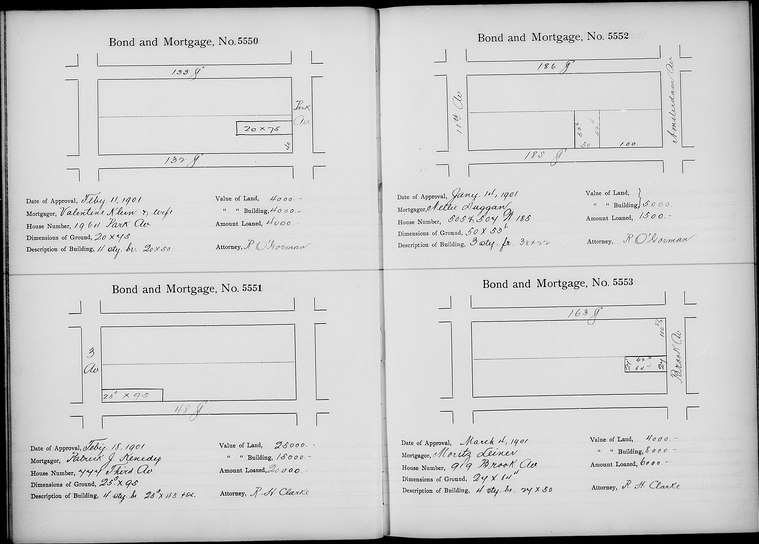 Bond and Mortgage, No. 5550
133 d
Park
Av
20 x 75
132 d
Date of Approval, Feby 11, 1901
Value of Land, 4000.-
Mortgagor, Valentine Klein & wife
" " Building, 4000.-
House Number, 1964 Park Av
Amount Loaned, 4000
Dimensions of Ground, 20 x 75
Description of Building, 4 sty. br. 20 x 50
Attorney, R O'Gorman
Bond and Mortgage, No. 5551
3
Av
25 x 95
48 d
Date of Approval, Feby 18, 1901
Value of Land, 25000.-
Mortgagor, Patrick J. Kenedy
" " Building, 15000.-
House Number, 777 Third Av
Amount Loaned, 20000.-
Dimensions of Ground, 25 x 95
Description of Building, 4 sty. br
Attorney, R H Clarke
Bond and Mortgage, No. 5552
186 d
11th Av
Amsterdam Av
50 100
185 d
Date of Approval, Jany. 14, 1901
Value of Land,
Mortgagor, Nellie Duggan
" " Building, 5000.-
House Number, 505 & 507 W 185
Amount Loaned, 1500.-
Dimensions of Ground, 50 x 53
Description of Building, 3 sty. fr.
Attorney, R O'Gorman
Bond and Mortgage, No. 5553
163 d
Brook Av
Date of Approval, March 4, 1901
Value of Land, 4000.-
Mortgagor, Moritz Leiner
" " Building, 8000.-
House Number, 919 Brook Av
Amount Loaned, 6000.-
Dimensions of Ground, 27 x 64
Description of Building, 4 sty. br. 27 x 50
Attorney, R H Clarke